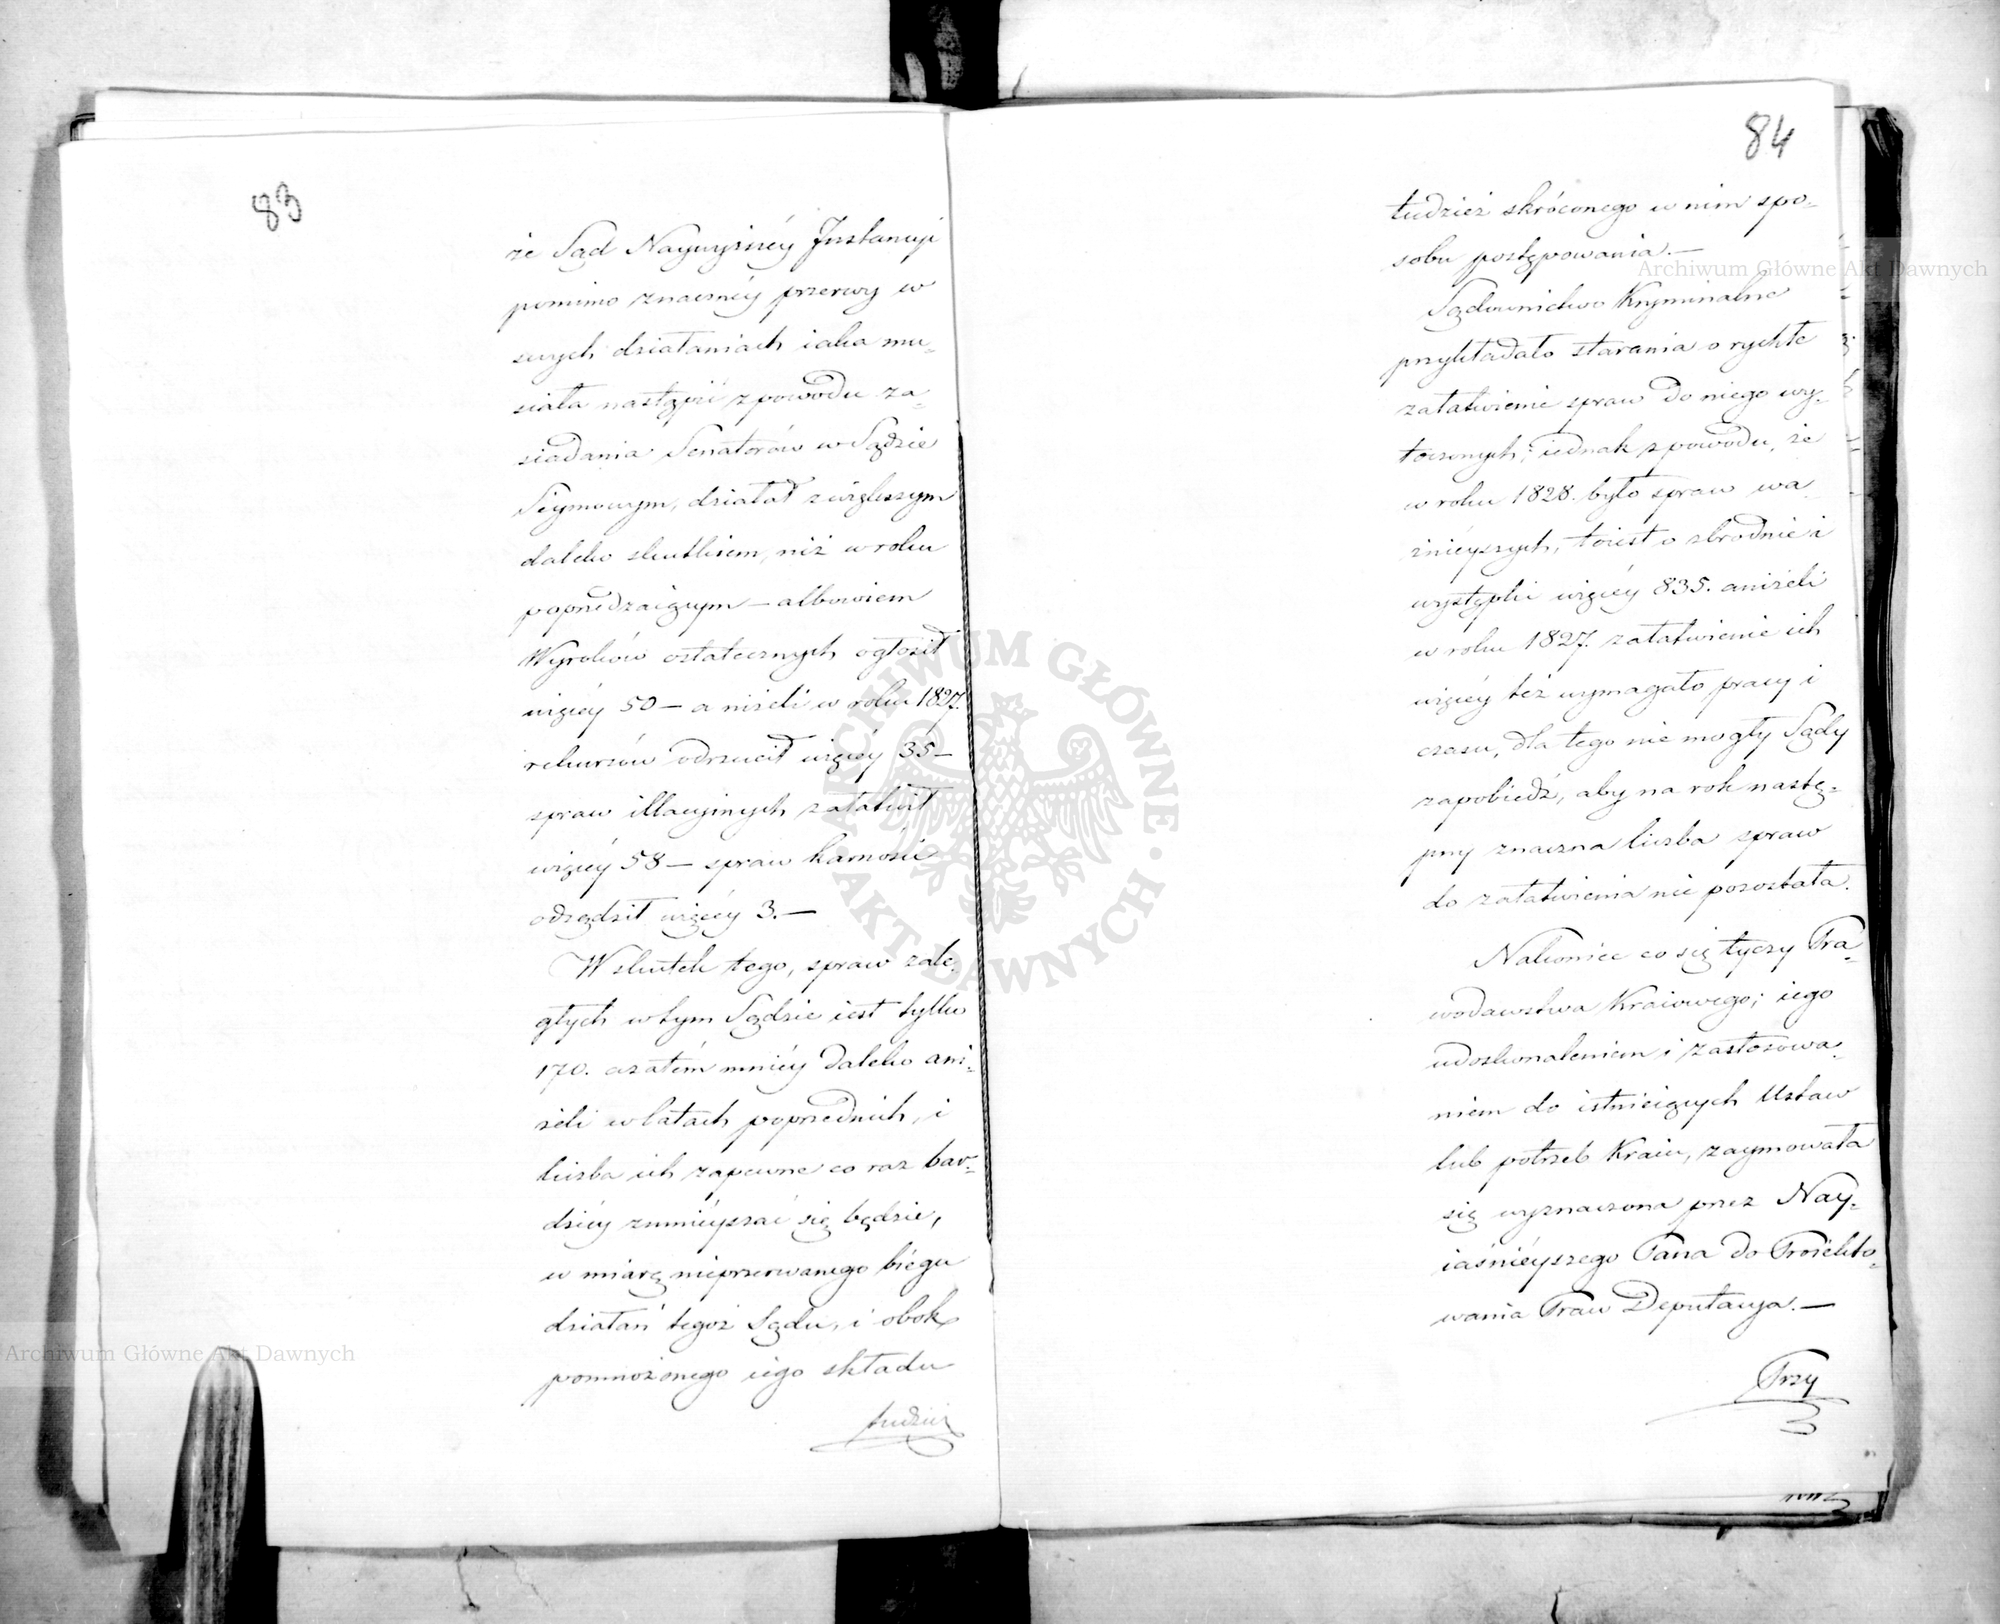 83
że Sąd Naywyższéy Instancyi
pomimo znacznéy przerwy w
swych działaniach iaka mu-
siała nastąpić z powodu za-
siadania Senatorów w Sądzie
Seymowym, działał z większym
daleko skutkiem, niż w roku
poprzedzaiącym – albowiem
Wyroków ostatecznych ogłosił
więcéy 50 – aniżeli w roku 1827.
rekursów odrzucił więcéy 35 –
spraw illacyinych załatwił
więcéy 58 – spraw karności
odsądził więcéy 3. –
W skutek tego, spraw zale-
głych w tym Sądzie iest tylko
170. a zatém mniéy daleko ani-
żeli w latach poprzednich, i
liczba ich zapewne co raz bar-
dziéy zmnieyszać się będzie,
w miarę nieprzerwanego biegu
działań tegoż Sądu, i obok
pomnożonego iego składu
tudzież
84
tudzież skróconego w nim spo-
sobu postępowania. –
Sądownictwo Kryminalne
przykładało starania o rychłe
załatwienie spraw do niego wy-
toczonych; iednak z powodu, że
w roku 1828. było spraw wa-
żnieyszych, to iest o zbrodnie i
występki więcéy 835. aniżeli
w roku 1827. załatwienie ich
więcéy też wymagało pracy i
czasu, dla tego nie mogły Sądy
zapobiedz, aby na rok nastę-
pny znaczna liczba spraw
do załatwienia nie pozostała.
Nakoniec co się tyczy Pra-
wodawstwa Kraiowego; iego
udoskonaleniem i zastosowa-
niem do istnieiących Ustaw
lub potrzeb Kraiu, zaymowała
się wyznaczona przez Nay-
iaśnieyszego Pana do Proiekto-
wania Praw Deputacya. –
Przy
Archiwum Główne Akt Dawnych
Archiwum Główne Akt Dawnych
ARCHIWUM GŁÓWNE
AKT DAWNYCH